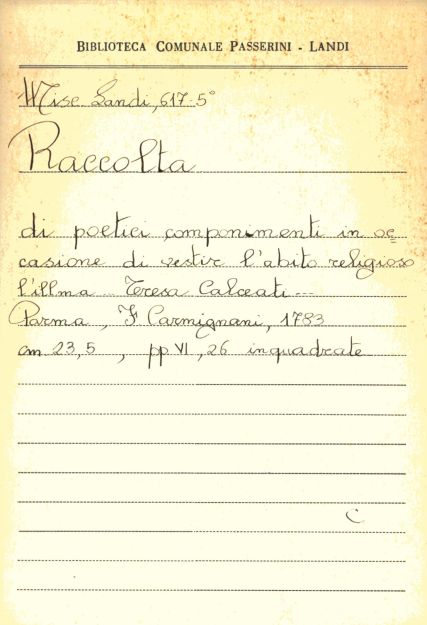 BIBLIOTECA COMUNALE PASSERINI - LANDI
Misc. Landi, 617-5°
Raccolta
di poetici componimenti in oc=
casione di vestir l'abito religioso
l'illma ... Teresa Calceati ...
Parma, F. Carmignani, 1783
cm 23,5 , pp VI, 26 inquadrate
C